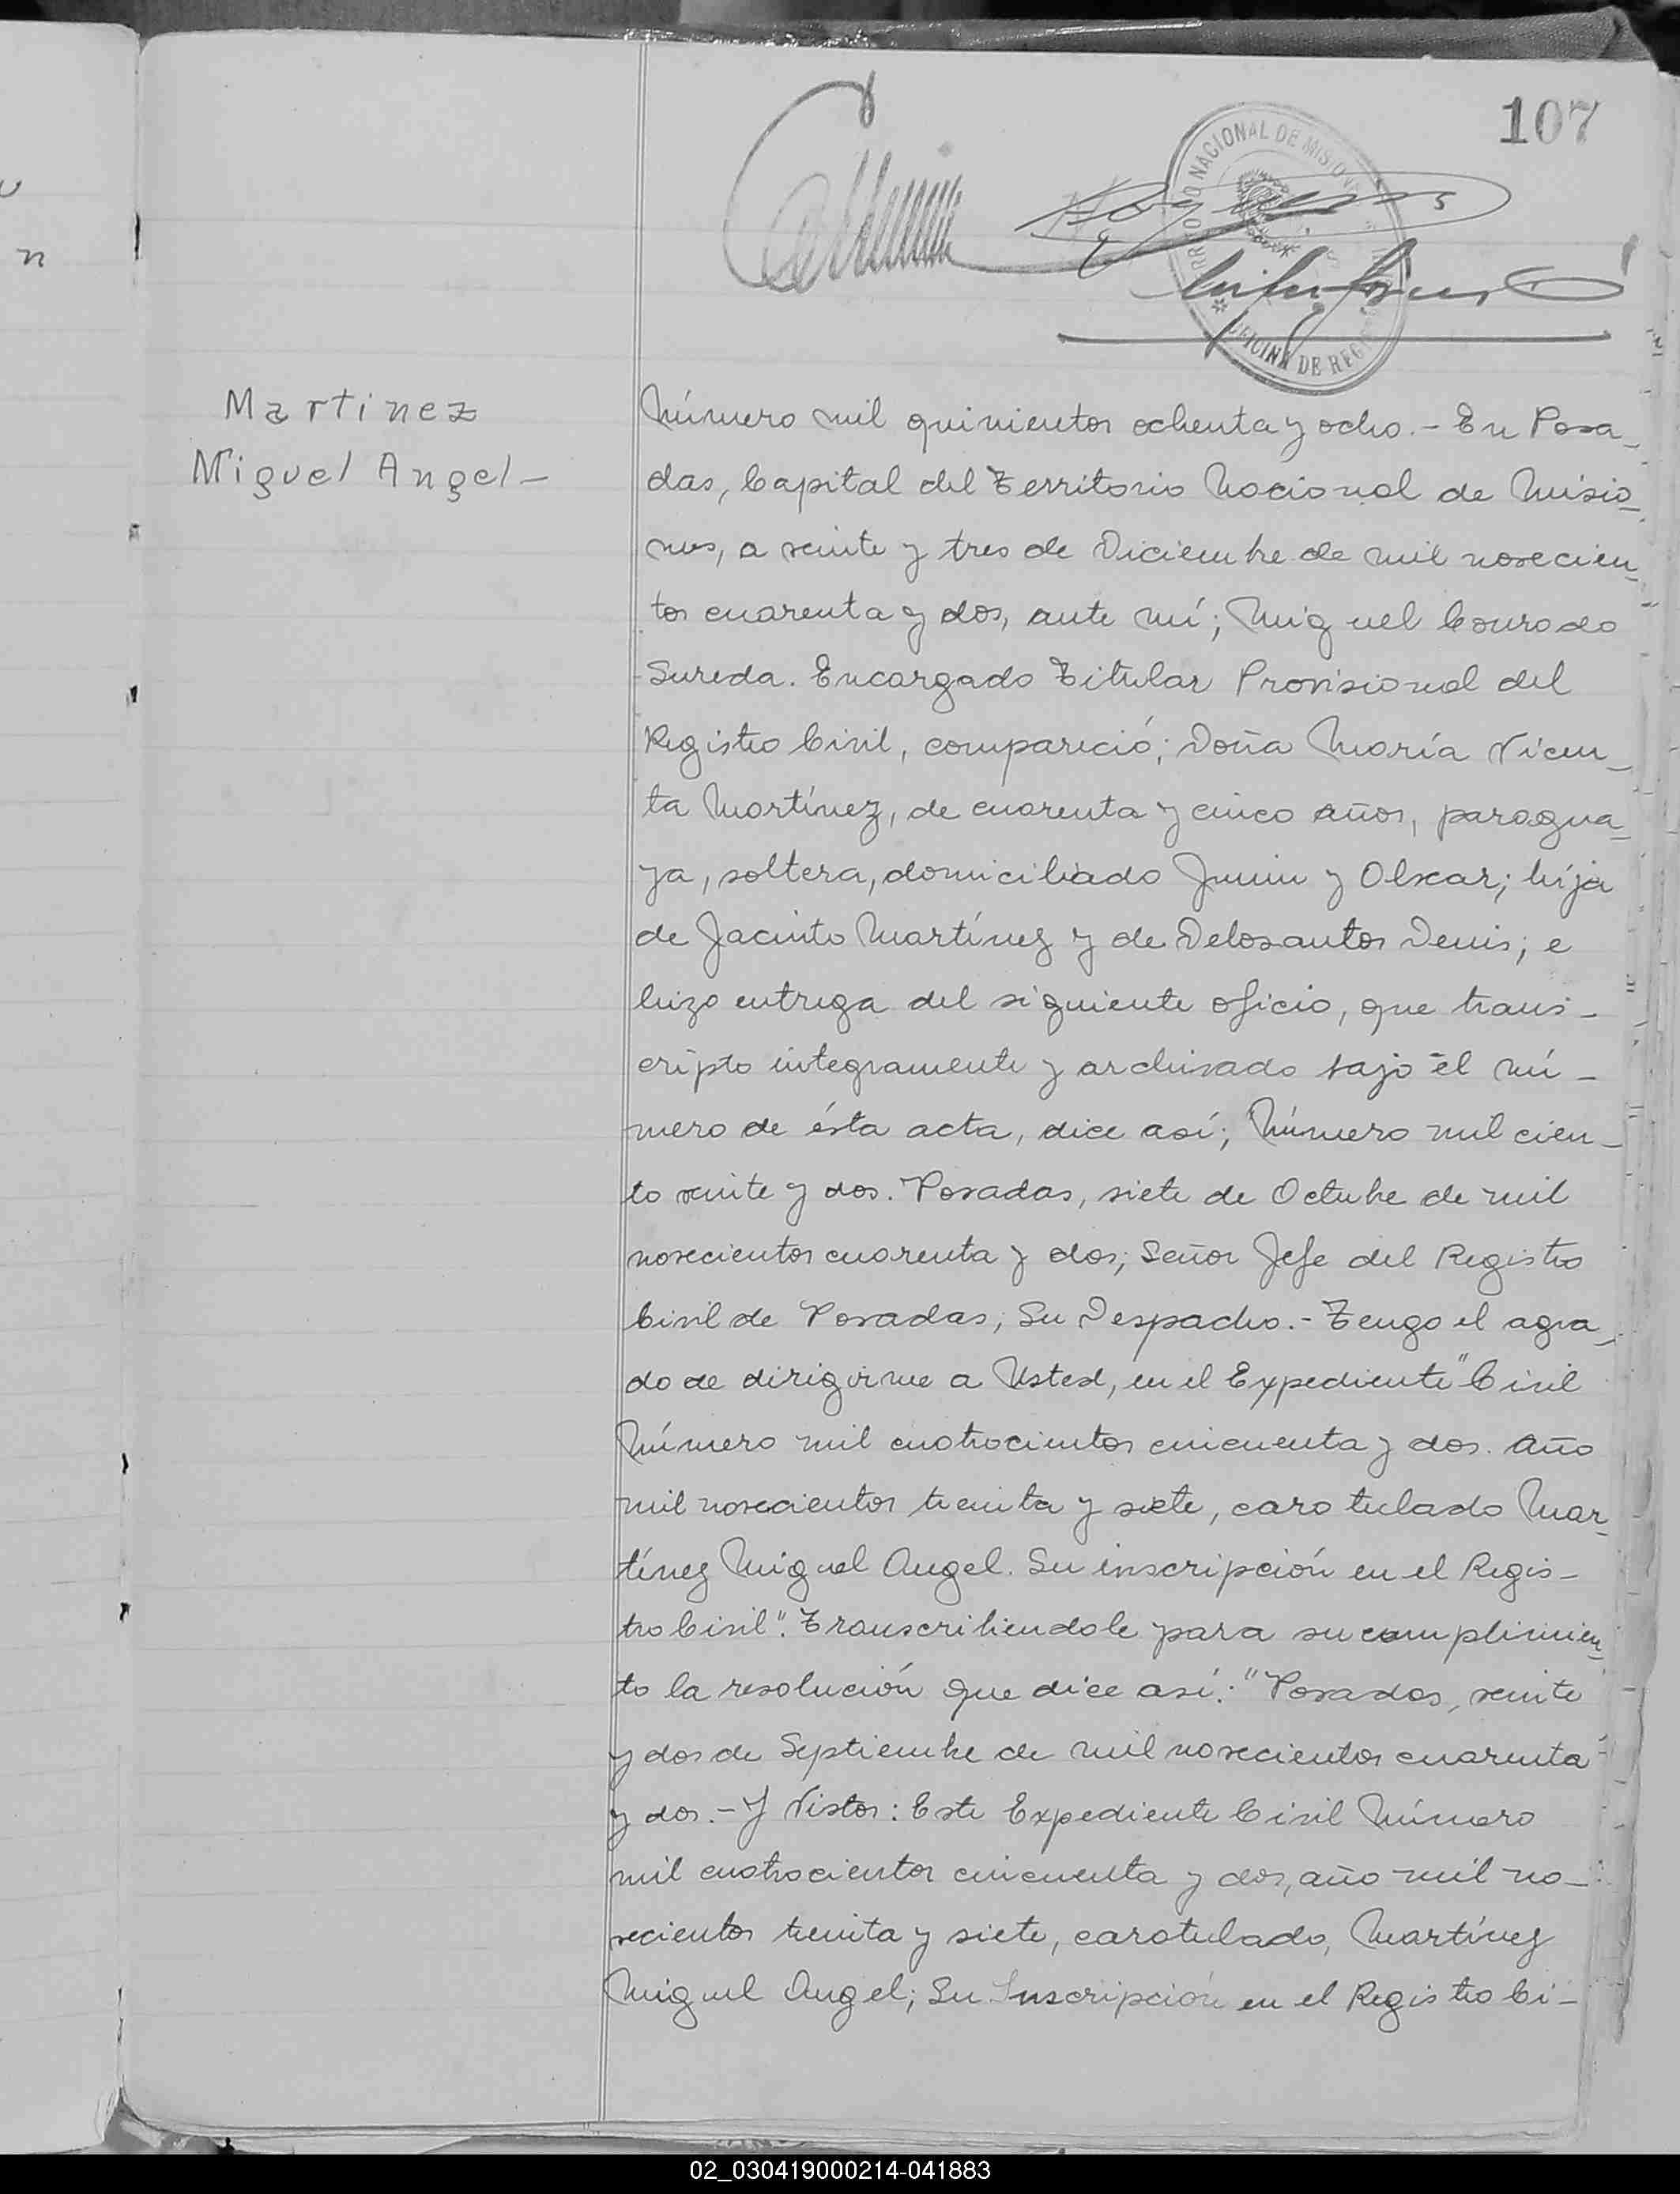 107
TERRITORIO NACIONAL DE MISIONES
OFICINA DE REG
Martinez
Miguel Angel-
Número mil quinientos ochenta y ocho.- En Posa_
das, Capital del Territorio Nacional de Misio_
nes, a veinte y tres de Diciembre de mil novecien_
tos cuarenta y dos, ante mí; Miguel Conrado
Sureda. Encargado Titular Provisional del
Registro Civil, compareció; Doña María Vicen_
ta Martínez, de cuarenta y cinco años, paragua_
ya, soltera, domiciliado Junin y Olscar; hija
de Jacinto Martínez y de Delosantos Denis; e
hizo entrega del siguiente oficio, que trans-
cripto integramente y archivado bajo el nú-
mero de ésta acta, dice así; Número mil cien_
to veinte y dos. Posadas, siete de Octubre de mil
novecientos cuarenta y dos; Señor Jefe del Registro
Civil de Posadas; Su Despacho.- Tengo el agra_
do de dirigirme a Usted, en el Expediente "Civil
Número mil cuatrocientos cincuenta y dos. Año
mil novecientos treinta y siete, caratulado Mar_
tínez Miguel Angel. Su inscripción en el Regis-
tro Civil". Transcribiendole para su cumplimien_
to la resolución que dice así: "Posadas, veinte
y dos de Septiembre de mil novecientos cuarenta
y dos.- Y Vistos: Este Expediente Civil Número
mil cuatrocientos cincuenta y dos, año mil no-
vecientos treinta y siete, caratulado, Martínez
Miguel Angel; Su Inscripción en el Registro Ci-
02_030419000214-041883